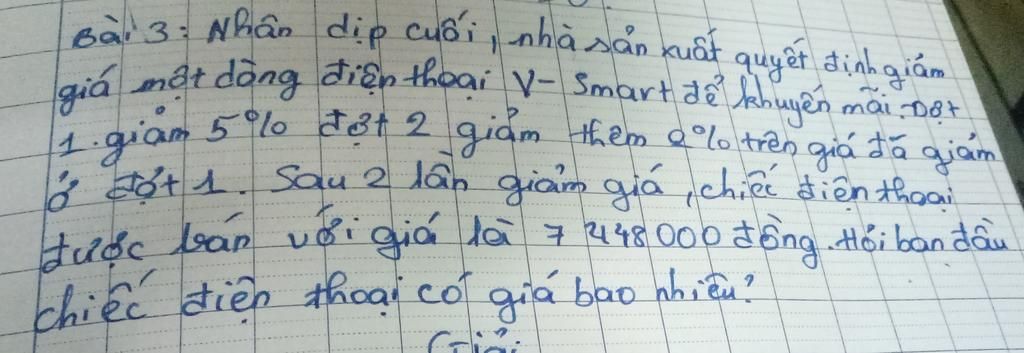 Bài 3: Nhân dịp cuối, nhà sản xuất quyết định giảm
giá một dòng điện thoại V-Smart để khuyến mãi. Đợt
1. giảm 5% đợt 2 giảm thêm 2% trên giá đã giảm
ở đợt 1. Sau 2 lần giảm giá, chiếc điện thoại
được bán với giá là 7 448 000 đồng. Hỏi ban đầu
chiếc điện thoại có giá bao nhiêu?
Giải: